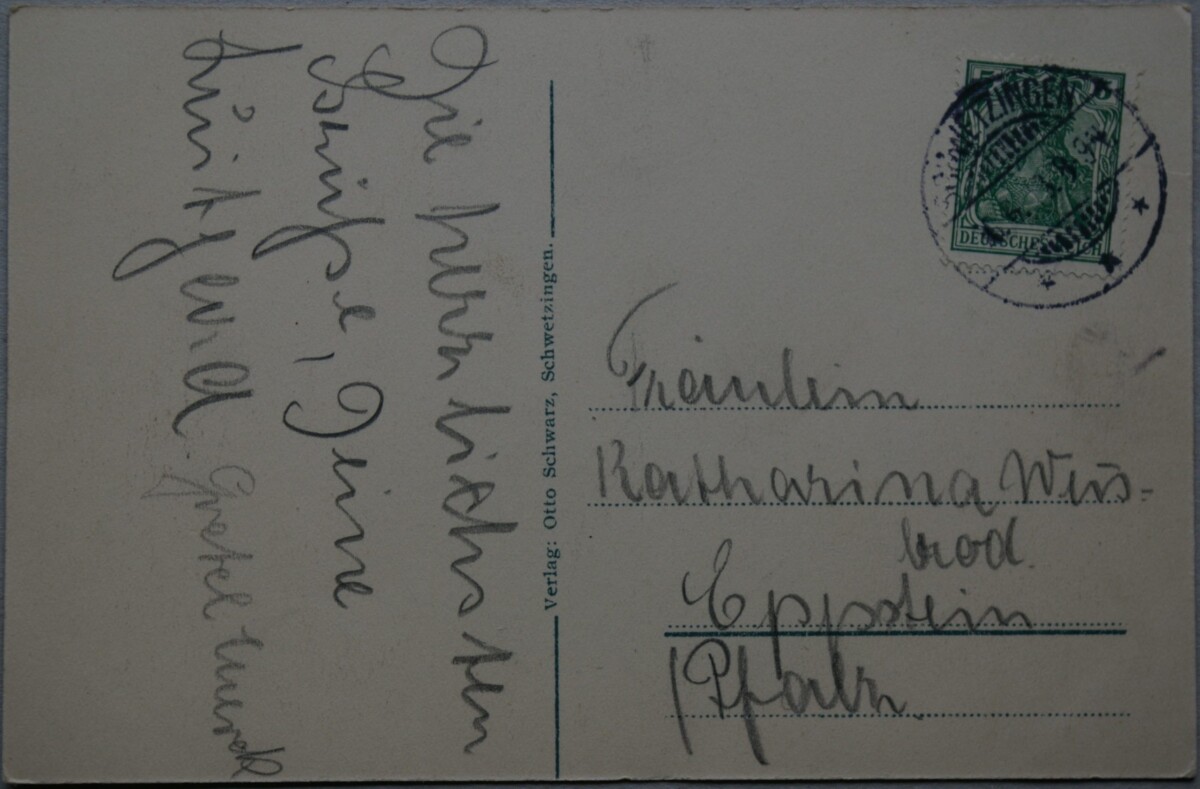 Die herzlichsten
Grüße, Deine
Luitgard
Gretel
Verlag: Otto Schwarz, Schwetzingen.
SCHWETZINGEN
DEUTSCHES REICH
Fräulein
Katharina Weis-
brod
Eppstein
/Pfalz.